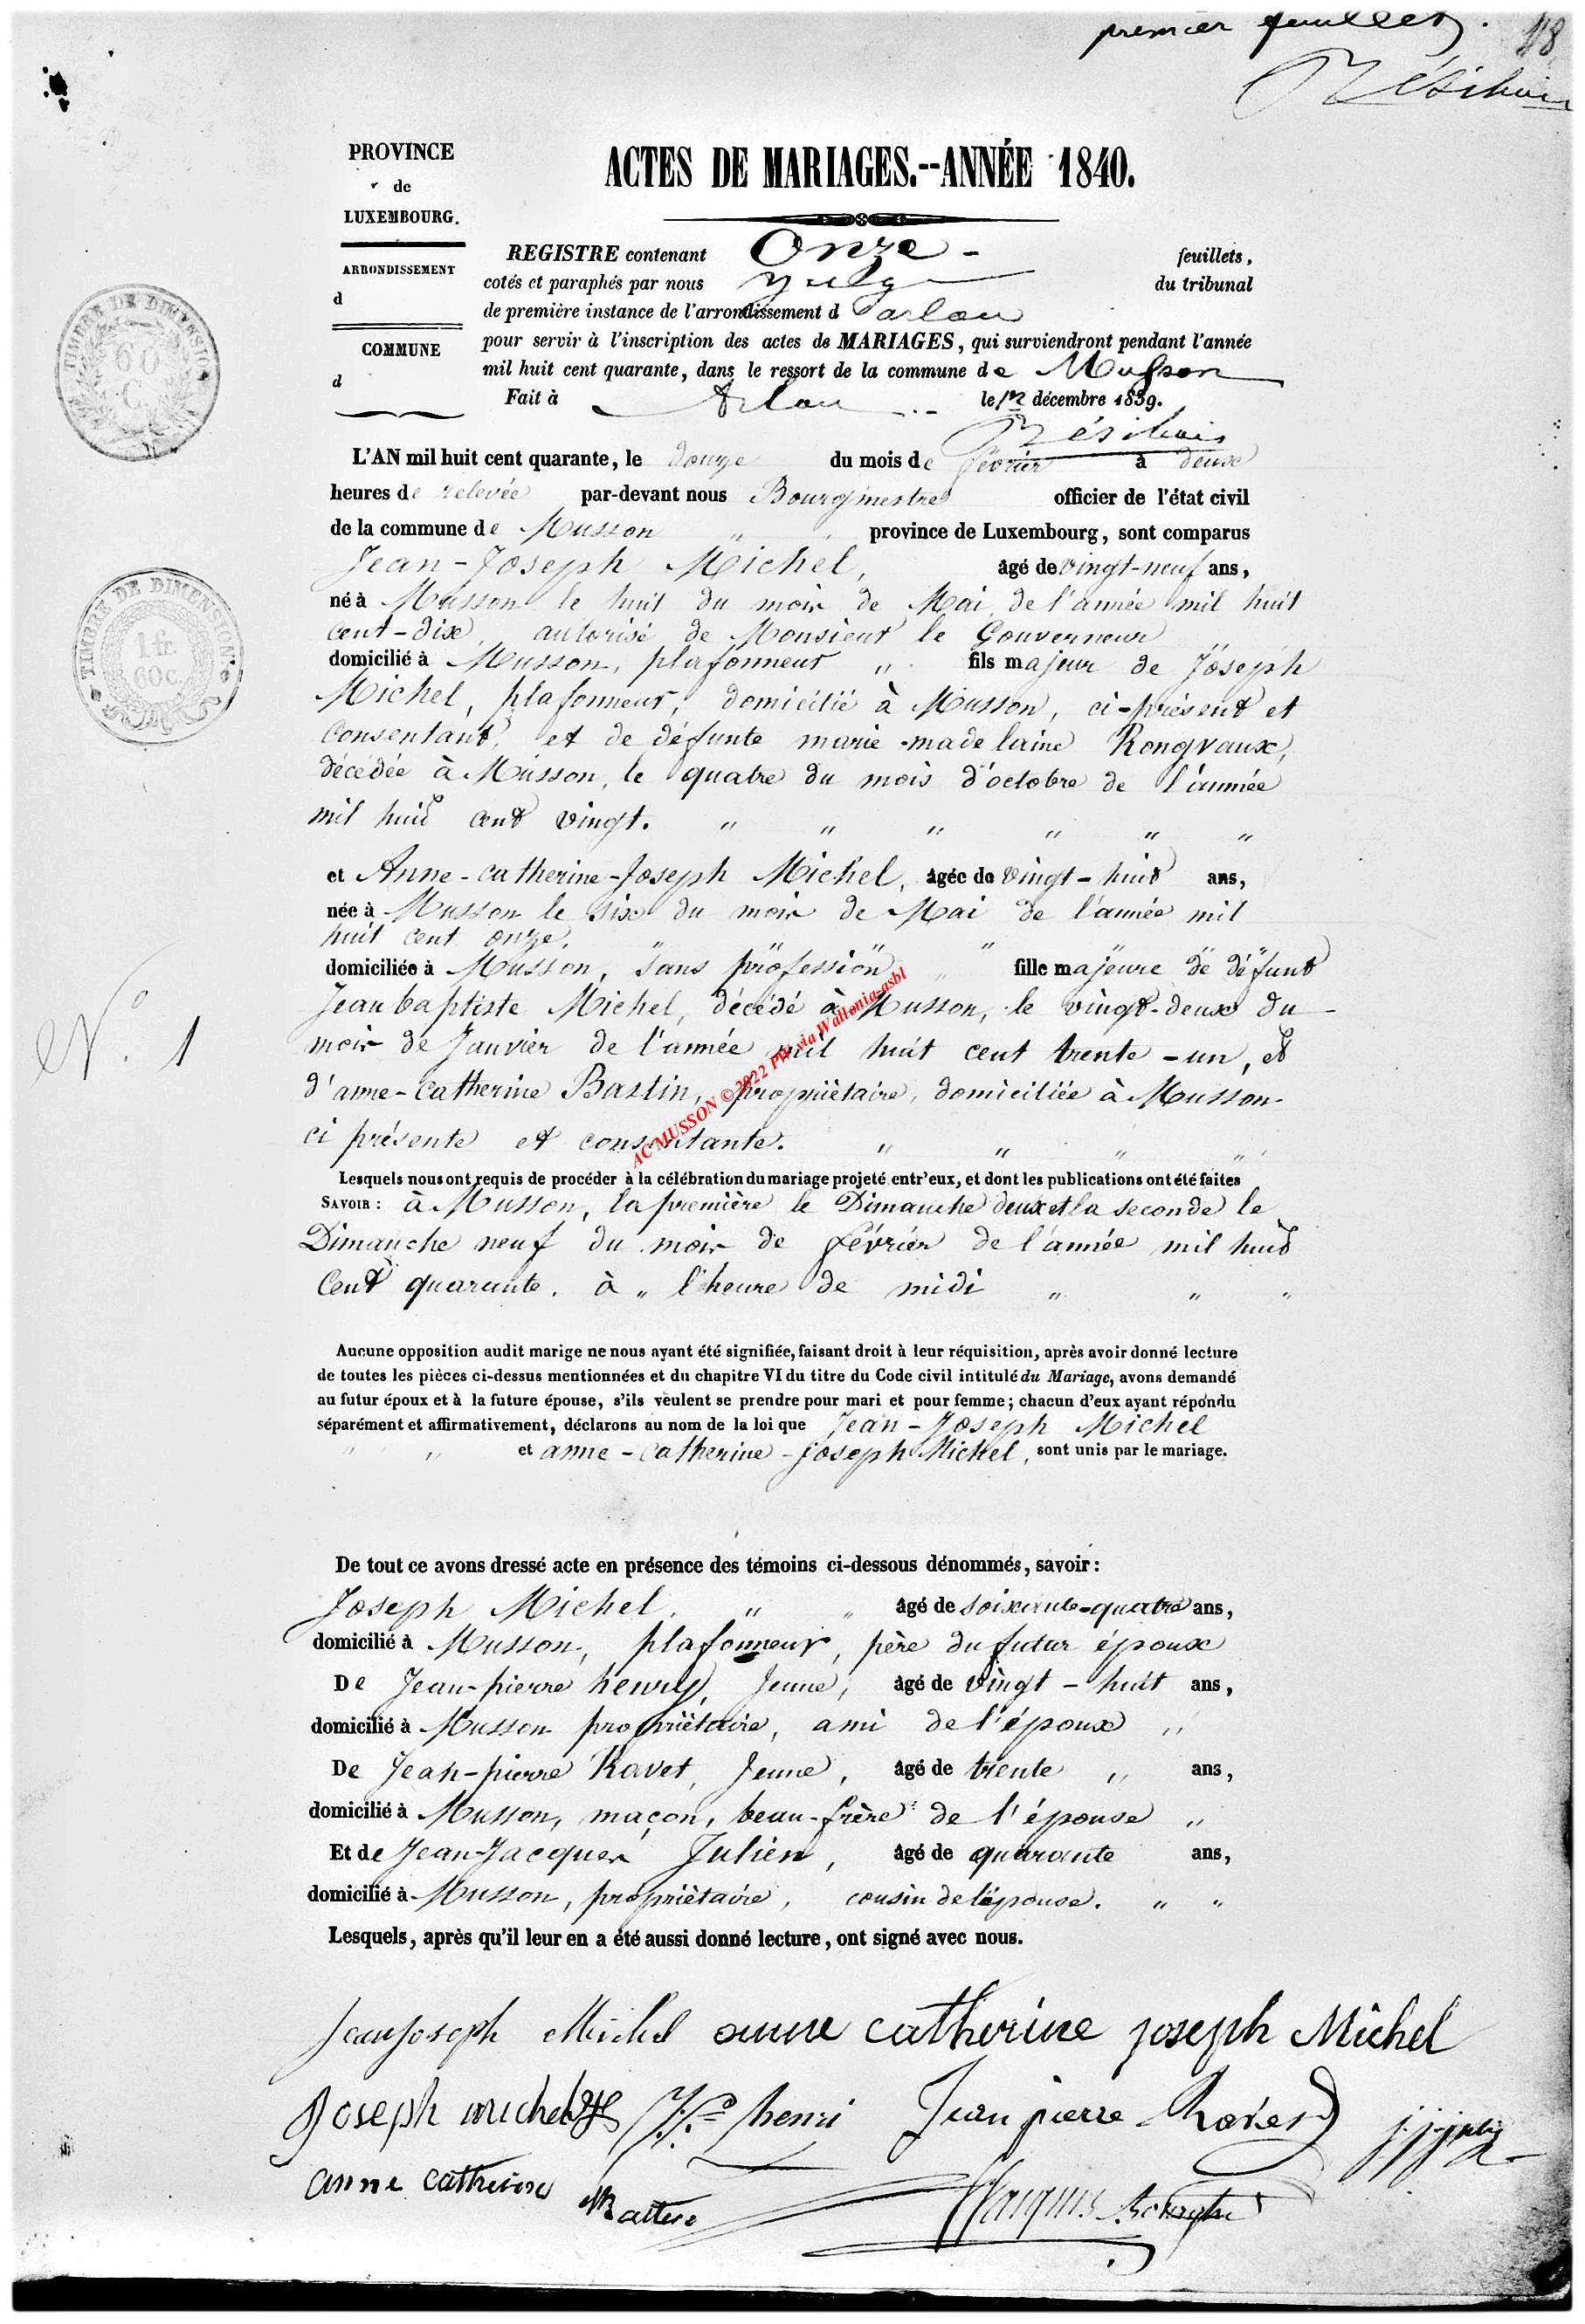 premier feuillet. 18
PROVINCE
de
LUXEMBOURG.
ARRONDISSEMENT
d
COMMUNE
d
TIMBRE DE DIMENSION
60
C.
TIMBRE DE DIMENSION
1 fr.
60 c.
ACTES DE MARIAGES.--ANNÉE 1840.
REGISTRE contenant Onze - feuillets,
cotés et paraphés par nous juge du tribunal
de première instance de l'arrondissement d'arlon
pour servir à l'inscription des actes de MARIAGES, qui surviendront pendant l'année
mil huit cent quarante, dans le ressort de la commune de Musson
Fait à Arlon le 1er décembre 1839.
L'AN mil huit cent quarante, le douze du mois de février à deux
heures de relevée par-devant nous Bourgmestre officier de l'état civil
de la commune de Musson " province de Luxembourg, sont comparus
Jean-Joseph Michel, âgé de vingt-neuf ans,
né à Musson le huit du mois de Mai de l'année mil huit
cent-dix, autorisé de Monsieur le Gouverneur "
domicilié à Musson, plafonneur " fils majeur de Joseph
Michel, plafonneur, domicilié à Musson, ci-présent et
consentant, et de défunte marie-madelaine Rongvaux,
décédée à Musson, le quatre du mois d'octobre de l'année
mil huit cent vingt. " " " " " "
et Anne-catherine-Joseph Michel, âgée de vingt-huit ans,
née à Musson le six du mois de Mai de l'année mil
huit cent onze. " " " " "
domiciliée à Musson, sans profession " " fille majeure de défunt
Jean baptiste Michel, décédé à Musson, le vingt-deux du
mois de Janvier de l'année mil huit cent trente-un, et
d'anne-catherine Bastin, propriétaire, domiciliée à Musson
ci présente et consentante. " " " "
AC MUSSON ©2022 PW via Wallonia-asbl
N° 1
Lesquels nous ont requis de procéder à la célébration du mariage projeté entr'eux, et dont les publications ont été faites
SAVOIR: à Musson, la première le Dimanche deux et la seconde le
Dimanche neuf du mois de février de l'année mil huit
Cent quarante. à " l'heure de midi " " "
Aucune opposition audit marige ne nous ayant été signifiée, faisant droit à leur réquisition, après avoir donné lecture
de toutes les pièces ci-dessus mentionnées et du chapitre VI du titre du Code civil intitulé du Mariage, avons demandé
au futur époux et à la future épouse, s'ils veulent se prendre pour mari et pour femme; chacun d'eux ayant répondu
séparément et affirmativement, déclarons au nom de la loi que Jean-Joseph Michel
" " et anne-catherine-joseph Michel, sont unis par le mariage.
De tout ce avons dressé acte en présence des témoins ci-dessous dénommés, savoir:
Joseph Michel, " " âgé de soixante-quatre ans,
domicilié à Musson, plafonneur, père du futur époux
De Jean-pierre henry, Jeune, âgé de vingt-huit ans,
domicilié à Musson propriétaire, ami de l'époux "
De Jean-pierre Ravet, Jeune, âgé de trente " ans,
domicilié à Musson, maçon, beau-frère de l'épouse "
Et de Jean-Jacques Julien, âgé de quarante ans,
domicilié à Musson, propriétaire, cousin de l'épouse. " "
Lesquels, après qu'il leur en a été aussi donné lecture, ont signé avec nous.
jean joseph Michel anne catherine joseph Michel
Joseph michel henri Jean pierre Ravet
anne catherine